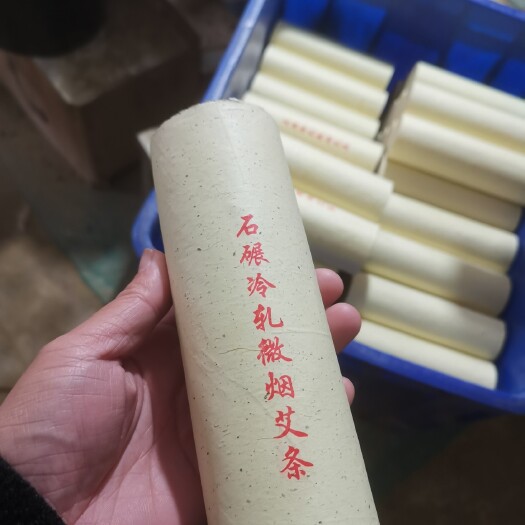 石碾冷轧微烟艾条